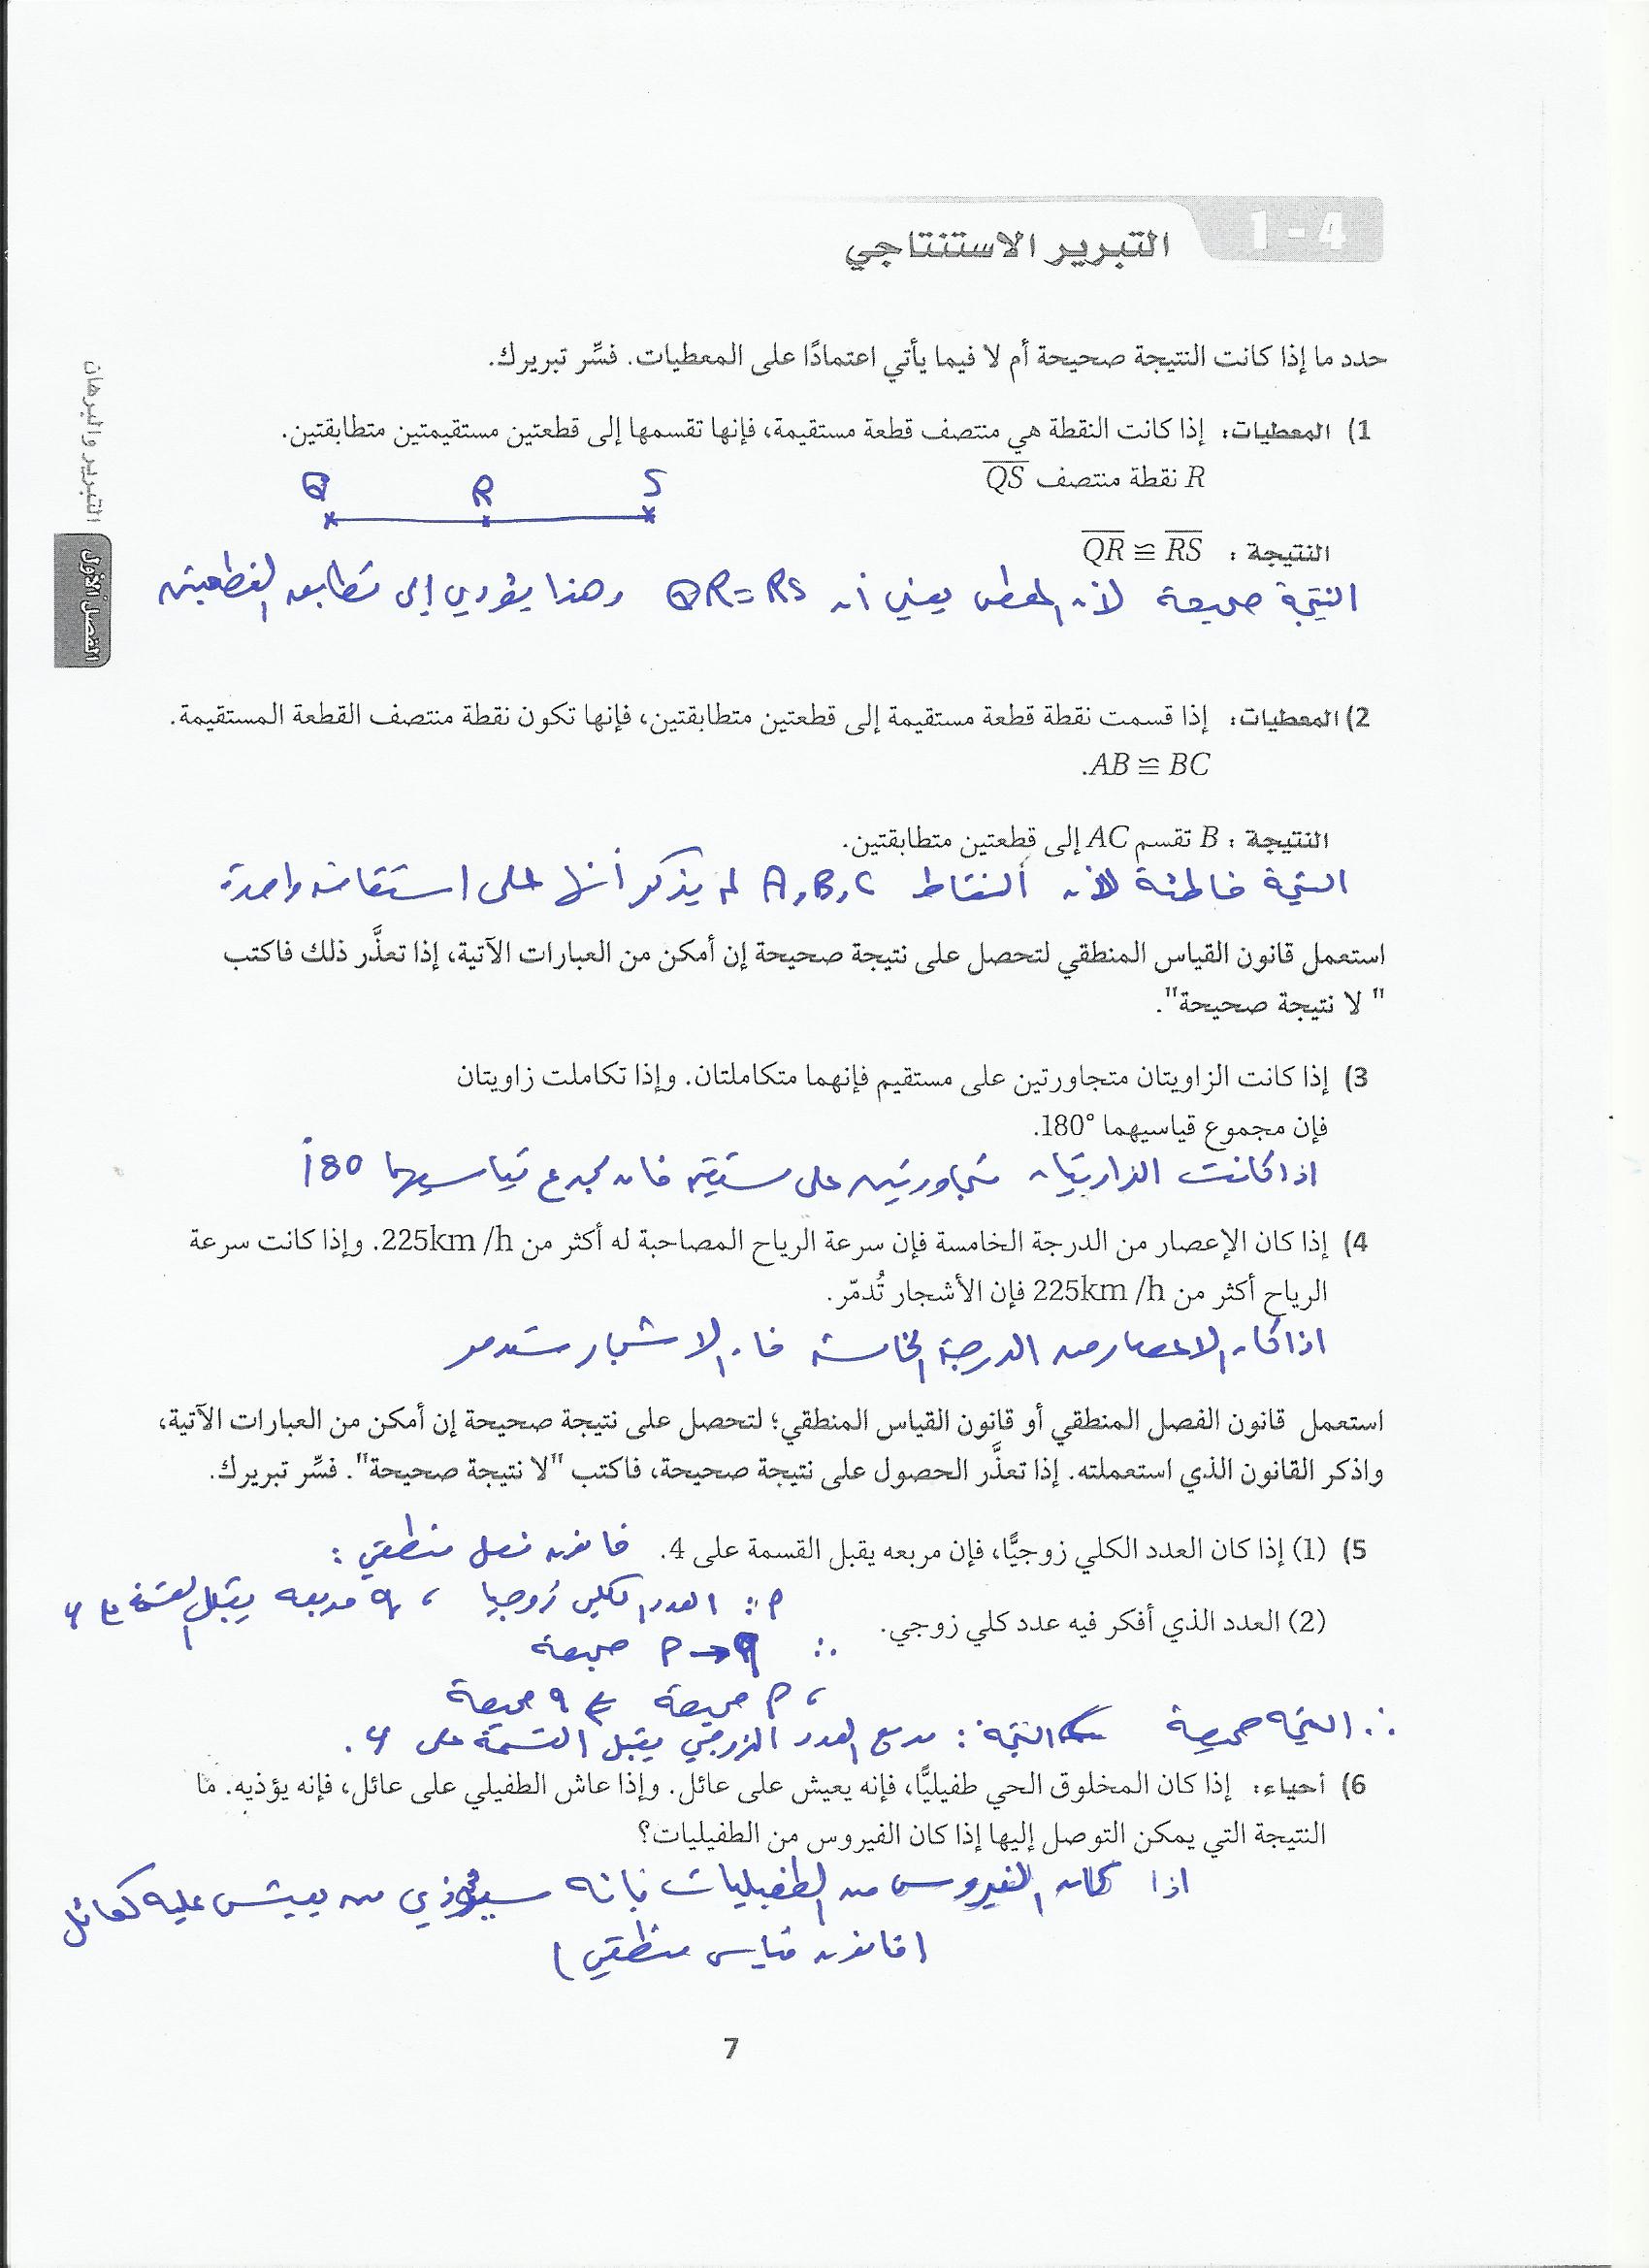 1 - 4
التبرير الاستنتاجي
حدد ما إذا كانت النتيجة صحيحة أم لا فيما يأتي اعتمادًا على المعطيات. فسِّر تبريرك.
1) المعطيات: إذا كانت النقطة هي منتصف قطعة مستقيمة، فإنها تقسمها إلى قطعتين مستقيمتين متطابقتين.
R نقطة منتصف QS
Q R S
النتيجة : QR ≅ RS
النتيجة صحيحة لأن المعطى يعني أن QR = RS وهذا يؤدي إلى تطابق القطعتين
2) المعطيات: إذا قسمت نقطة قطعة مستقيمة إلى قطعتين متطابقتين، فإنها تكون نقطة منتصف القطعة المستقيمة.
AB ≅ BC.
النتيجة : B تقسم AC إلى قطعتين متطابقتين.
النتيجة خاطئة لأن النقاط A, B, C لم يذكر أنها على استقامة واحدة
استعمل قانون القياس المنطقي لتحصل على نتيجة صحيحة إن أمكن من العبارات الآتية، إذا تعذَّر ذلك فاكتب
" لا نتيجة صحيحة".
3) إذا كانت الزاويتان متجاورتين على مستقيم فإنهما متكاملتان. وإذا تكاملت زاويتان
فإن مجموع قياسيهما 180°.
اذا كانت الزاويتان متجاورتين على مستقيم فان مجموع قياسيهما 180°
4) إذا كان الإعصار من الدرجة الخامسة فإن سرعة الرياح المصاحبة له أكثر من 225km /h. وإذا كانت سرعة
الرياح أكثر من 225km /h فإن الأشجار تُدمّر.
اذا كان الاعصار من الدرجة الخامسة فان الاشجار ستدمر
استعمل قانون الفصل المنطقي أو قانون القياس المنطقي؛ لتحصل على نتيجة صحيحة إن أمكن من العبارات الآتية،
واذكر القانون الذي استعملته. إذا تعذَّر الحصول على نتيجة صحيحة، فاكتب "لا نتيجة صحيحة". فسِّر تبريرك.
5) (1) إذا كان العدد الكلي زوجيًّا، فإن مربعه يقبل القسمة على 4. قانون فصل منطقي :
p : العدد الكلي زوجيا ، q مربعه يقبل القسمة على 4
(2) العدد الذي أفكر فيه عدد كلي زوجي.
∴ p → q صحيحة
، p صحيحة ⇐ q صحيحة
∴ النتيجة صحيحة ⇐ النتيجة : مربع العدد الزوجي يقبل القسمة على 4 .
6) أحياء: إذا كان المخلوق الحي طفيليًّا، فإنه يعيش على عائل. وإذا عاش الطفيلي على عائل، فإنه يؤذيه. ما
النتيجة التي يمكن التوصل إليها إذا كان الفيروس من الطفيليات؟
اذا كان الفيروس من الطفيليات فانه سيؤذي من يعيش عليه كعائل
(قانون قياس منطقي)
7
التبرير والبرهان
الفصل الأول